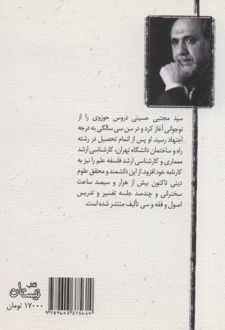 سید مجتبی حسینی دروس حوزوی را از
نوجوانی آغاز کرد و در سن سی سالگی به درجه
اجتهاد رسید. او پس از اتمام تحصیل در رشته
راه و ساختمان دانشگاه تهران، کارشناسی ارشد
معماری و کارشناسی ارشد فلسفه علم را نیز به
کارنامه خود افزود. از این دانشمند و محقق علوم
دینی تاکنون بیش از هزار و سیصد ساعت
سخنرانی و چندصد جلسه تفسیر و تدریس
اصول و فقه و سی تألیف منتشر شده است.
کتاب
نیستان
۱۷۰۰۰ تومان